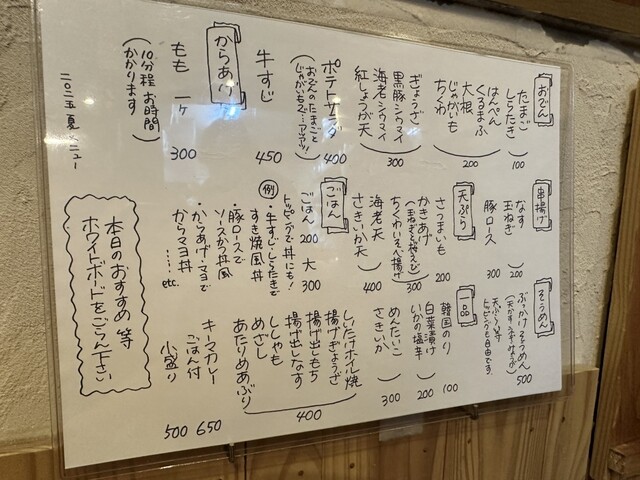 おでん
たまご
しらたき
100
はんぺん
くるまふ
大根
じゃがいも
ちくわ
200
ぎょうざ
黒豚シウマイ
海老シウマイ
紅しょうが天
300
ポテトサラダ
400
(おでんのたまごと
じゃがいもで…アツアツ)
牛すじ
450
からあげ
もも 一ヶ
300
(10分程お時間
かかります)
二〇二五 夏メニュー
串揚げ
なす
玉ねぎ
200
豚ロース
300
天ぷら
さつまいも
200
かきあげ
(玉ねぎと桜えび)
ちくわいそべ揚げ
300
海老天
さきいか天
400
ごはん
ごはん 200 大 300
トッピングで丼にも!
例
・牛すじ・しらたきで
すき焼風丼
・豚ロースで
ソースかつ丼風
・からあげ・マヨで
からマヨ丼
…… etc.
そうめん
ぶっかけそうめん
500
天ぷら等
トッピングも自由です。
一品
韓国のり
100
白菜漬け
いかの塩辛
200
めんたいこ
さきいか
300
しいたけホイル焼
揚げぎょうざ
揚げ出しもち
揚げ出しなす
ししゃも
めざし
あたりめあぶり
400
キーマカレー
ごはん付 650
小盛り 500
本日のおすすめ等
ホワイトボードをごらん下さい